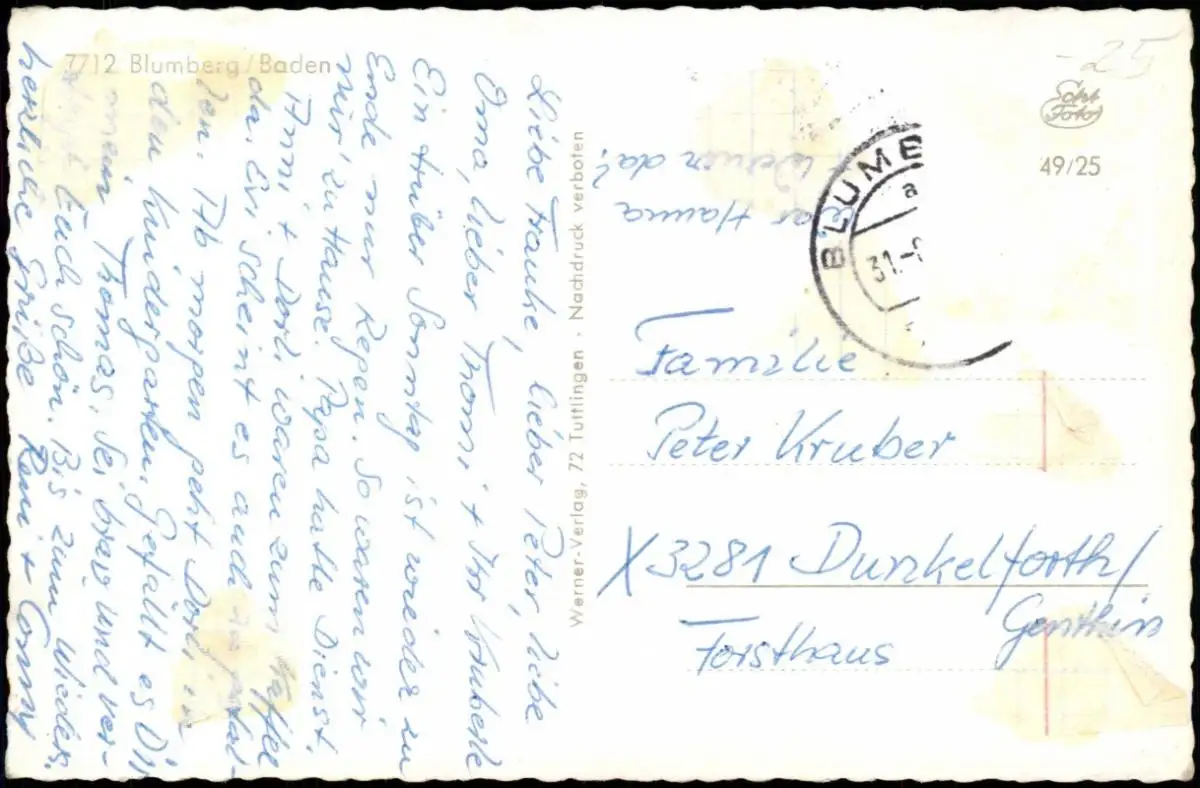 7712 Blumberg/Baden
Liebe Frauke, lieber Peter, liebe
Oma, lieber Thomi + Ihr Kruberle
Ein trüber Sonntag ist wieder zu
Ende nur Regen. So waren wir
nur zu Hause. Papa hatte Dienst,
Anni + Dorli waren zum Kaffee
da. Evi scheint es auch zu gefal-
len. Ab morgen geht Dorli in
den Kindergarten. Gefällt es Dir
mein Thomas. Sei brav und ver-
Euch schön. Bis zum Wieders.
herzliche Grüße Romi + Conny
Werner-Verlag, 72 Tuttlingen · Nachdruck verboten
War Hanna
Werner da?
-25
Foto
49/25
BLUMBE
a
31.-
Familie
Peter Kruber
X 3281 Dunkelforth/
Genthin
Forsthaus